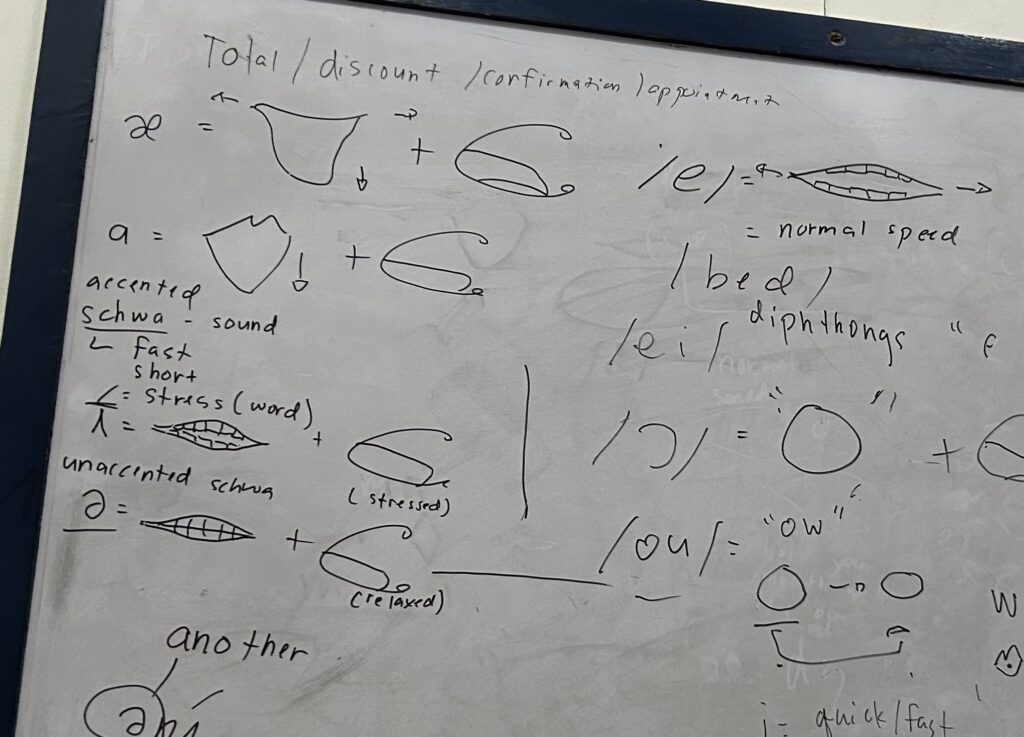 Total / discount / confirmation / appointment
æ =
+
a =
+
accented
schwa - sound
fast
short
= stress (word)
ʌ =
+
(stressed)
unaccented schwa
ə =
+
(relaxed)
another
/e/ =
= normal speed
/bed/
/ei/ diphthongs "
/ɔ/ = " "
+
/ou/ = "ow"
W
i = quick/fast